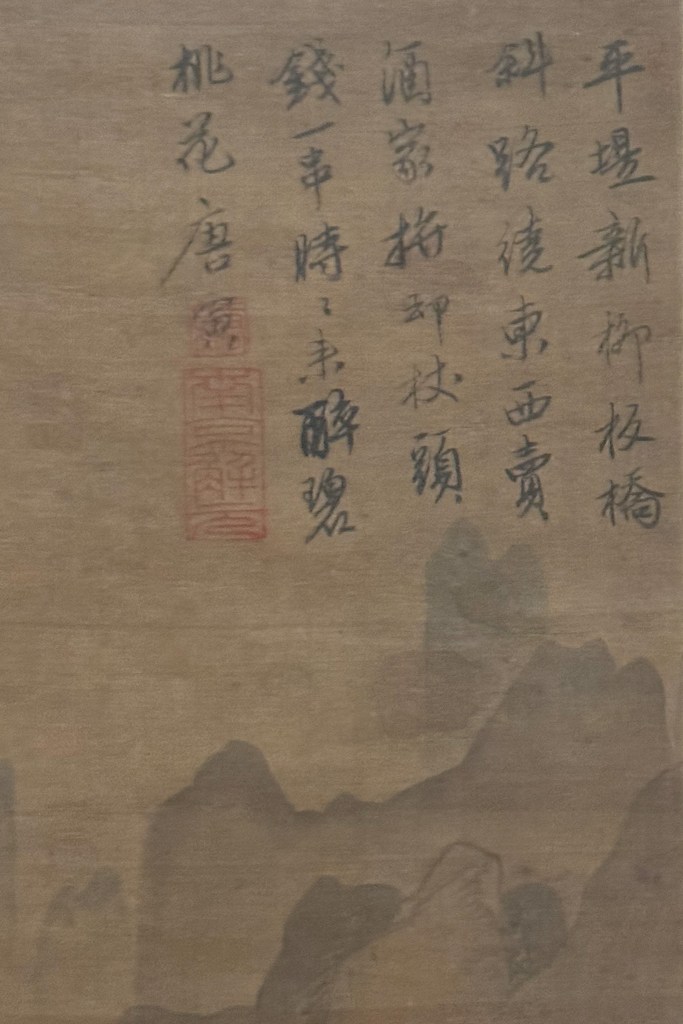 平堤新柳板橋
斜路繞東西賣
酒家拚却杖頭
錢一串時〻來醉碧
桃花 唐寅
南京解元